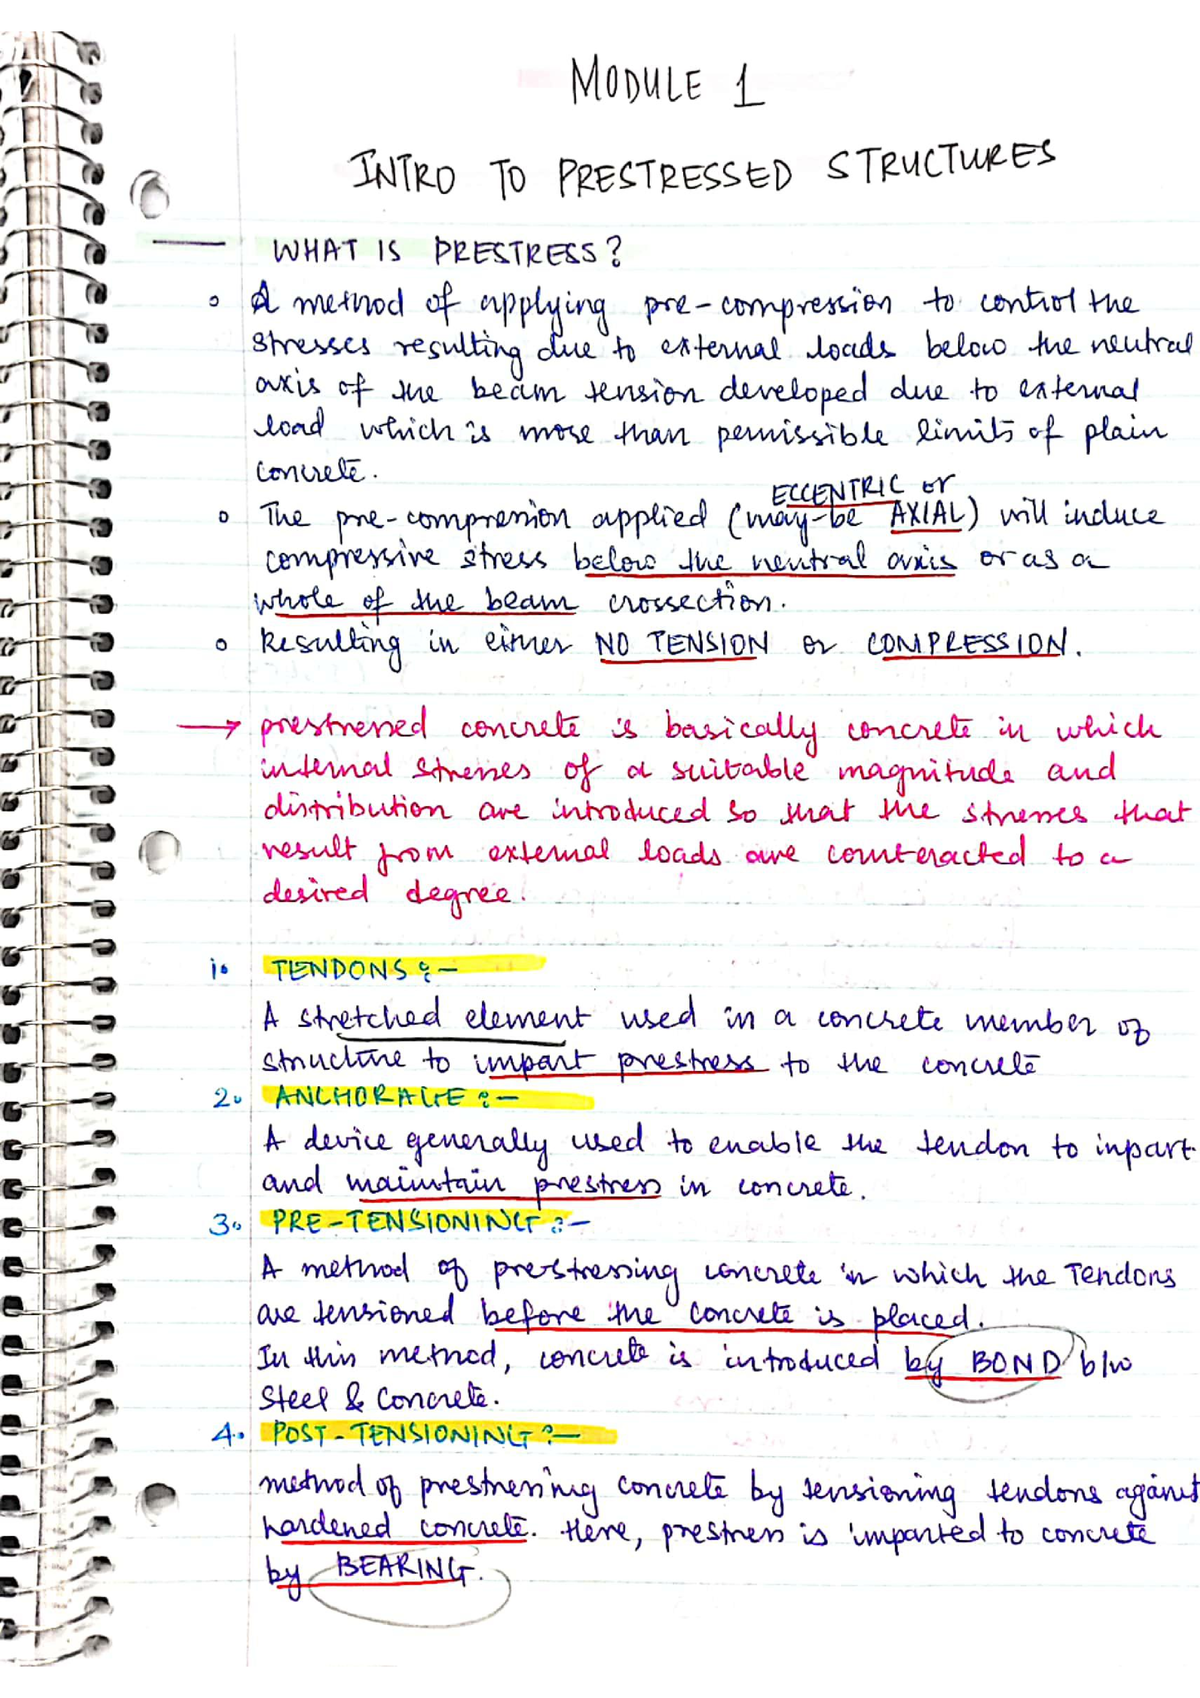 MODULE 1
INTRO TO PRESTRESSED STRUCTURES
WHAT IS PRESTRESS?
A method of applying pre-compression to control the
stresses resulting due to external loads below the neutral
axis of the beam tension developed due to external
load which is more than permissible limits of plain
concrete.
ECCENTRIC or
The pre-compression applied (may-be AXIAL) will induce
compressive stress below the neutral axis or as a
whole of the beam crossection.
Resulting in either NO TENSION or COMPRESSION.
→ prestressed concrete is basically concrete in which
internal stresses of a suitable magnitude and
distribution are introduced so that the stresses that
result from external loads are counteracted to a
desired degree.
1. TENDONS :-
A stretched element used in a concrete member of
structure to impart prestress to the concrete
2. ANCHORAGE :-
A device generally used to enable the tendon to inpart
and maintain prestress in concrete.
3. PRE-TENSIONING :-
A method of prestressing concrete in which the Tendons
are tensioned before the concrete is placed.
In this method, concrete is introduced by BOND b/w
Steel & Concrete.
4. POST-TENSIONING :-
method of prestressing concrete by tensioning tendons against
hardened concrete. Here, prestress is imparted to concrete
by BEARING.